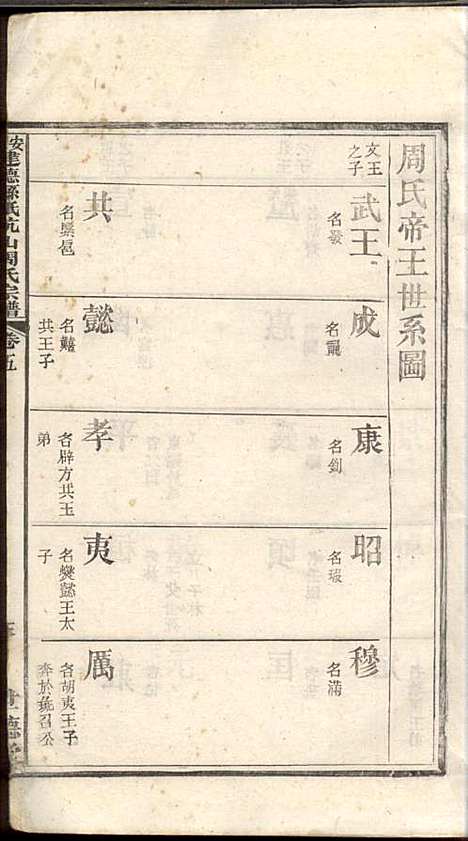 周氏帝王世系圖
文王
之子
武王
名發
成
名誦
康
名釗
昭
名瑕
穆
名滿
共
名緊邑
懿
名囏
共王子
孝
名辟方共王
弟
夷
名燮懿王太
子
厲
名胡夷王子
奔於彘召公
建德縣氏杭山周氏宗譜
卷五